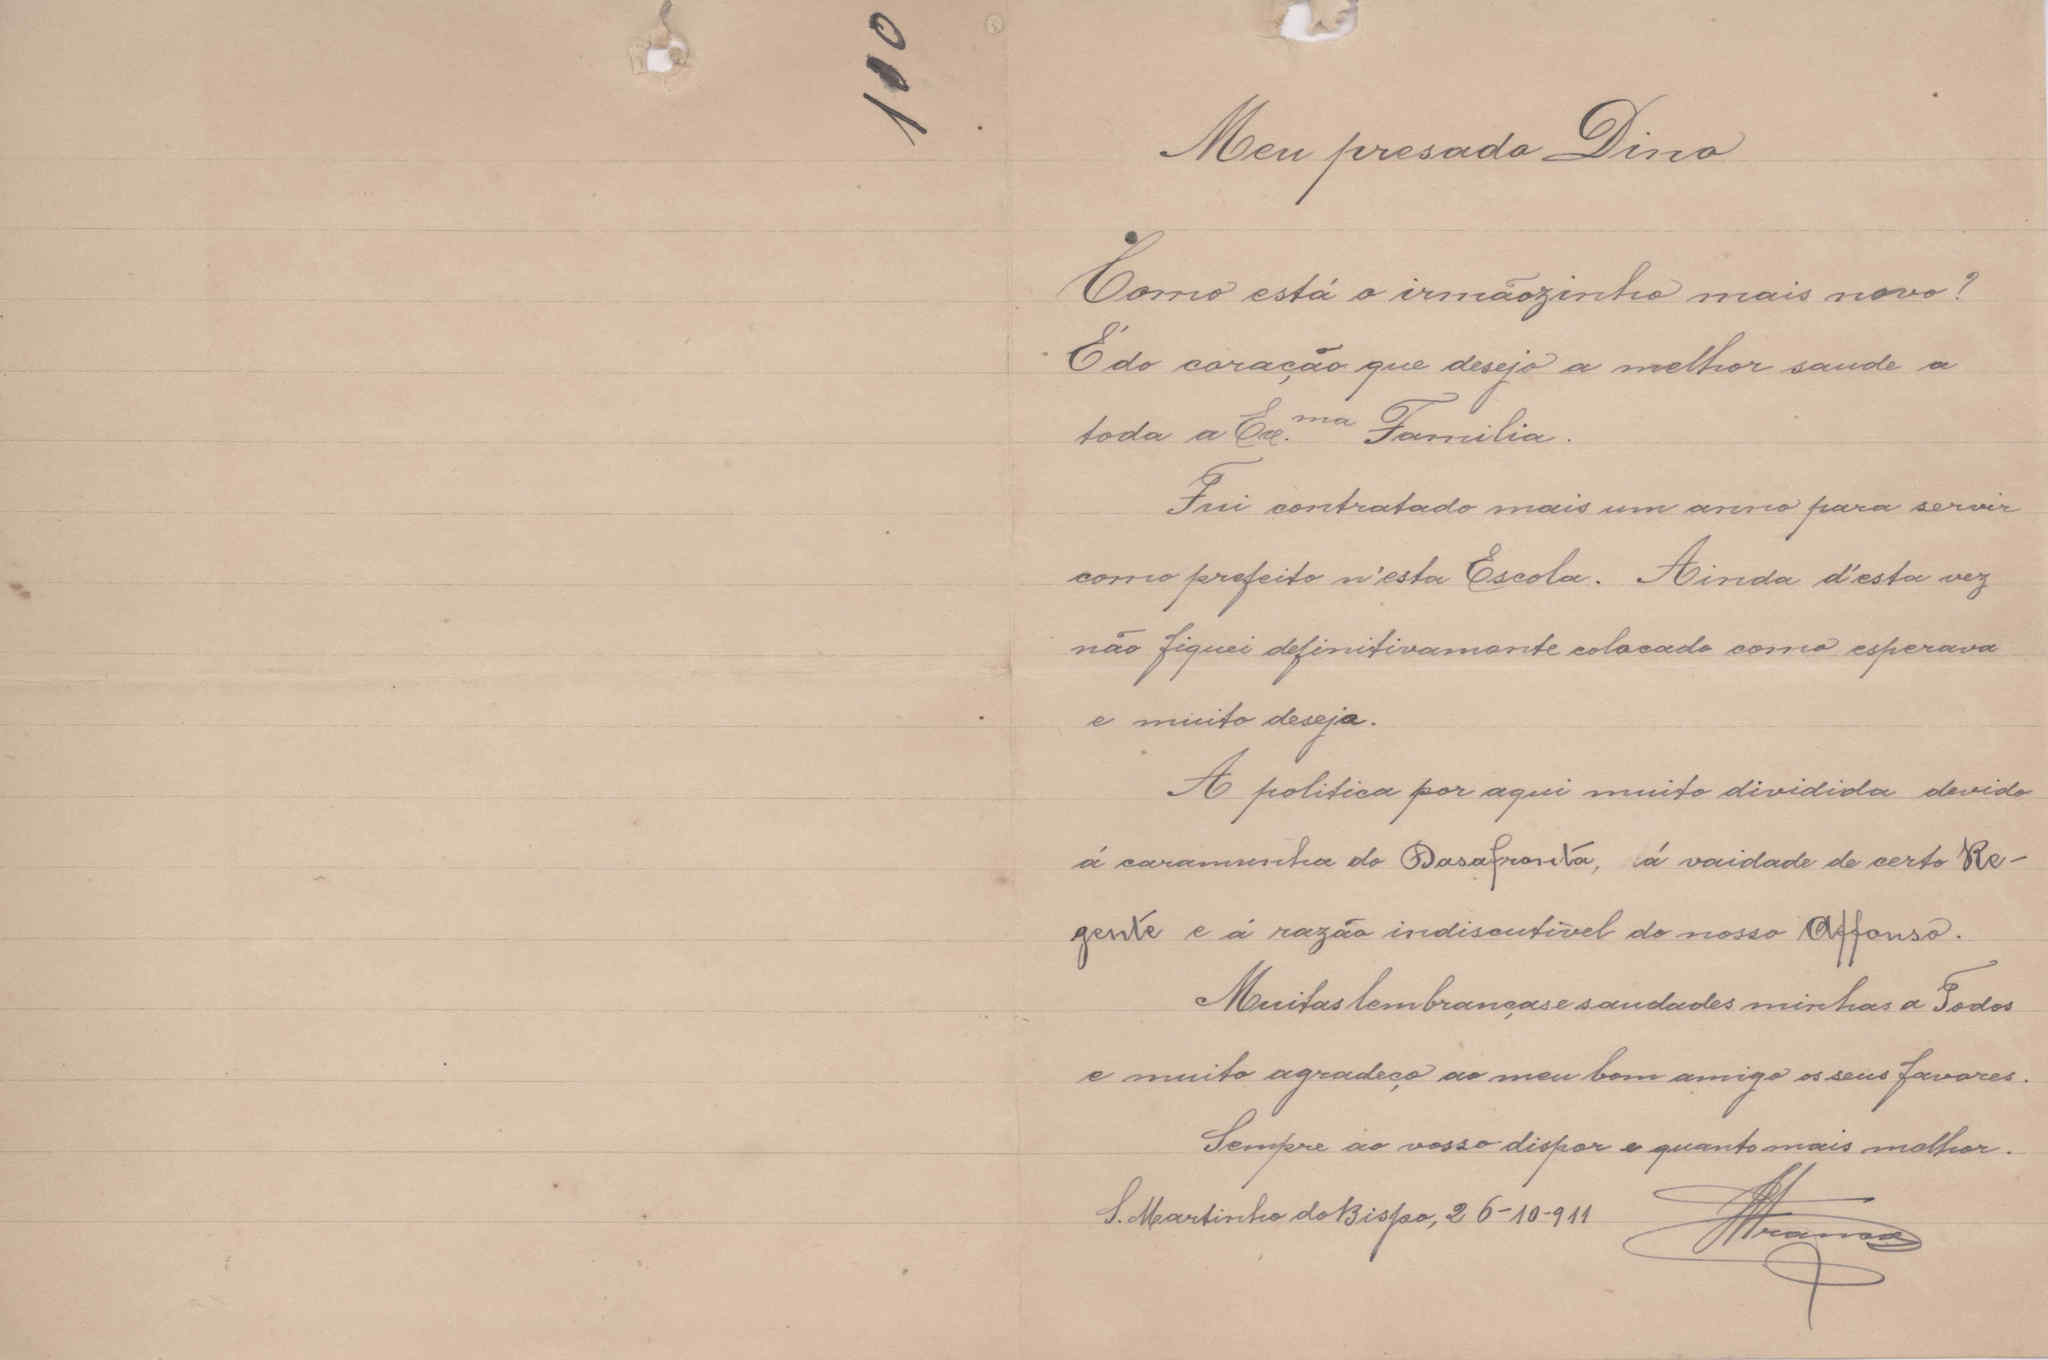 100
Meu presado Dino
Como está o irmãozinho mais novo?
É do coração que desejo a melhor saude a
toda a Ex.ma Familia.
Fui contratado mais um anno para servir
como prefeito n'esta Escola. Ainda d'esta vez
não fiquei definitivamente colocado como esperava
e muito deseja.
A politica por aqui muito dividida devido
á caramunha do Dasafronta, á vaidade de certo Re-
gente e á razão indiscutivel do nosso Affonso.
Muitas lembranças e saudades minhas a Todos
e muito agradeço ao meu bom amigo os seus favores.
Sempre ao vosso dispor e quanto mais melhor.
S. Martinho do Bispo, 26-10-911